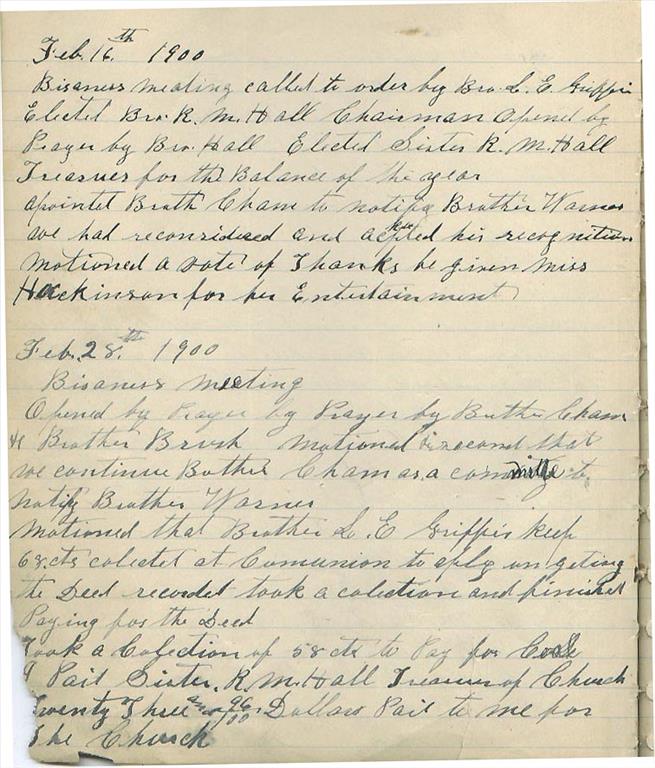 Feb. 16th 1900
Bisaness meating called to order by Bro. L. E. Griffin
Elected Bro. R. M. Hall Chairman Opened by
Prayer by Bro. Hall Elected Sister R. M. Hall
Treasuer for the Balance of the year
apointet Broth Cham to notify Brother Warner
we had reconridered and acpted his recognition
motioned a vote of Thanks be given Miss
Hockinson for her Entertainment
Feb. 28.th 1900
Bisaness meeting
Opened by Prayer by Prayer by Buther Cham
& Brother Brush motioned & second that
we continue Buther Cham as a committe to
notify Brother Warner
motioned that Brother L. E Griffin keep
68 cts colectet at Comunion to aply on geting
the Deed recordet took a colection and finished
Paying for the Deed
Took a Colection of 58 cts to Pay for Coal
I Pait Sister. R. M. Hall Treasuer of Church
Twenty Three and 96/100 Dollars Pait to me for
The Church